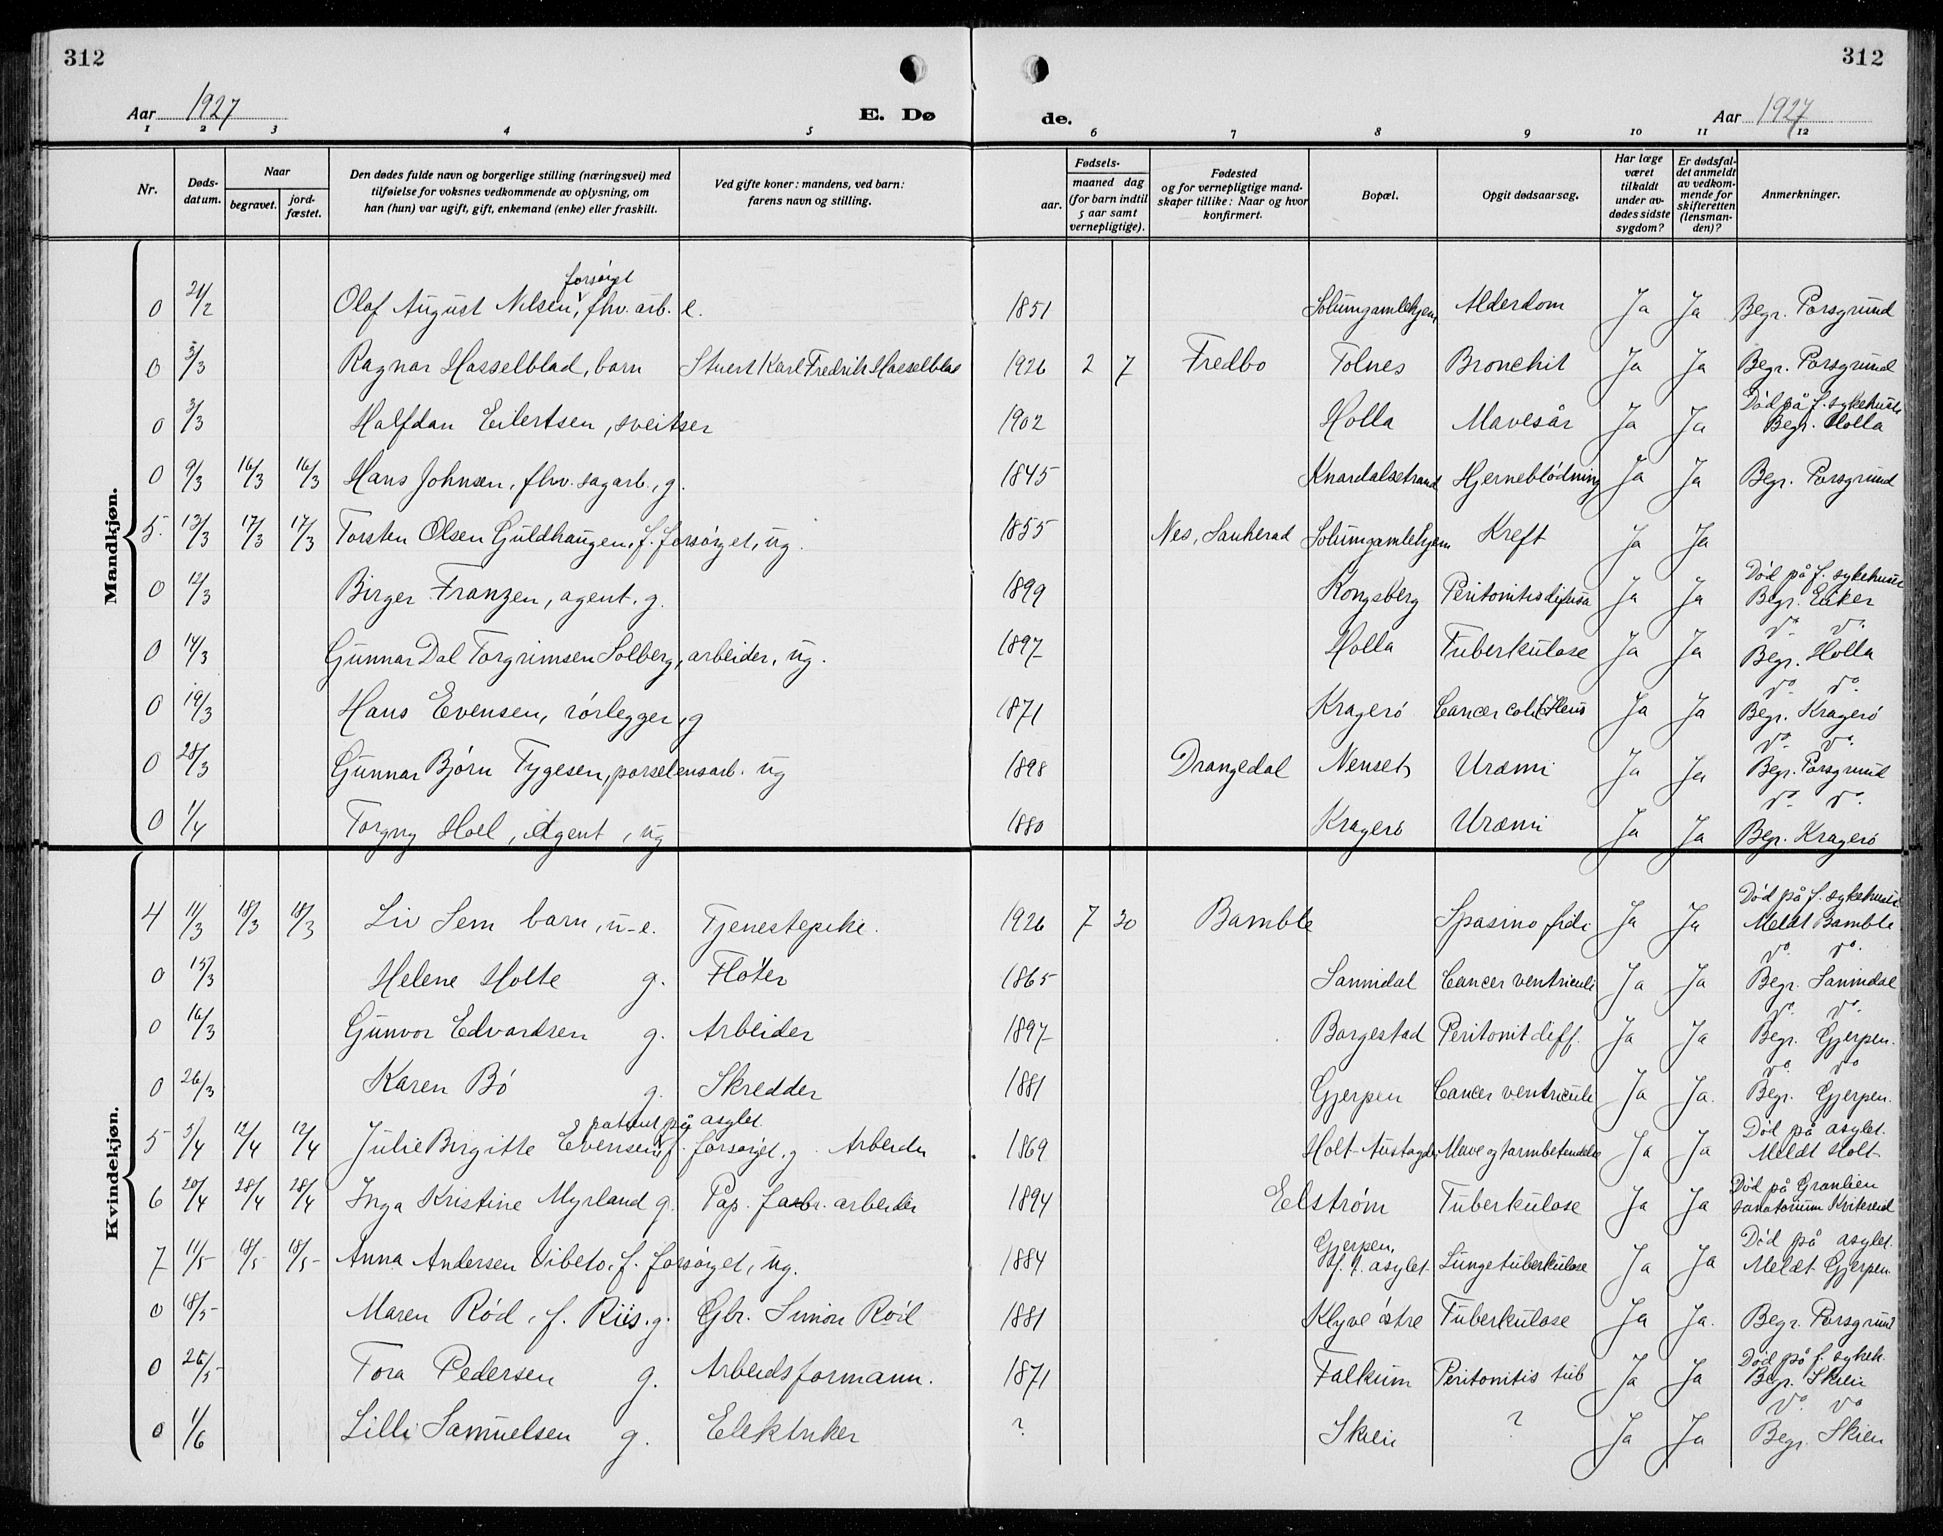 312
312
Aar 1927
E. Dø
de.
Aar 1927
1 2 3 4 5 6 7 8 9 10 11 12
Nr.
Døds-
datum.
Naar
begravet.
jord-
fæstet.
Den dødes fulde navn og borgerlige stilling (næringsvei) med
tilføielse for voksnes vedkommende av oplysning, om
han (hun) var ugift, gift, enkemand (enke) eller fraskilt.
Ved gifte koner: mandens, ved barn:
farens navn og stilling.
Fødsels-
aar.
maaned dag
(for barn indtil
5 aar samt
vernepligtige).
Fødested
og for vernepligtige mand-
skaper tillike: Naar og hvor
konfirmert.
Bopæl.
Opgit dødsaarsag.
Har læge
været
tilkaldt
under av-
dødes sidste
sygdom?
Er dødsfal-
det anmeldt
av vedkom-
mende for
skifteretten
(lensman-
den)?
Anmerkninger.
Mandkjøn.
forsørget
0 21/2 Olaf August Nilsen, fhv. arb. e. 1851 Solumgamlehjem Alderdom Ja Ja Begr. Porsgrund
0 3/3 Ragnar Hasselblad, barn Stuert Karl Fredrik Hasselblad 1926 2 7 Fredbo Tolnes Bronchit Ja Ja Begr. Porsgrund
Død på f. sykehuset
0 3/3 Halfdan Eilertsen, sveitser 1902 Holla Mavesår Ja Ja Begr. Holla
0 9/3 16/3 16/3 Hans Johnsen, fhv. sagarb., g. 1845 Knardalsstrand Hjerneblødning Ja Ja Begr. Porsgrund
5. 13/3 17/3 17/3 Torsten Olsen Guldhaugen, f. forsørget, ug. 1855 Nes, Sauherad Solumgamlehjem Kreft Ja Ja
Død på f. sykehuset
0 12/3 Birger Franzen, agent. g. 1899 Kongsberg Peritonitis difusa Ja Ja Begr. Eiker
do. do.
0 14/3 Gunnar Dal Torgrimsen Solberg, arbeider, ug. 1897 Holla Tuberkulose Ja Ja Begr. Holla
do. do.
0 19/3 Hans Evensen, rørlegger, g 1871 Kragerø Cancer coli (Ileus Ja Ja Begr. Kragerø
do. do.
0 28/3 Gunnar Bjørn Tygesen, porselensarb. ug 1898 Drangedal Nenset Uræmi Ja Ja Begr. Porsgrund
do. do.
0 1/4 Torgny Hoel, Agent, ug 1880 Kragerø Uræmi Ja Ja Begr. Kragerø
Kvindekjøn.
Død på f. sykehuset
4 11/3 18/3 18/3 Liv Sem barn, u-e. Tjenestepike. 1926 7 30 Bamble Spasmo fidi Ja Ja Meldt Bamble
do. do.
0 15/3 Helene Holte g. Fløter 1865 Sannidal Cancer ventriculi Ja Ja Begr. Sannidal
do. do.
0 16/3 Gunvor Edvardsen g. Arbeider 1897 Borgestad Peritonit diff. Ja Ja Begr. Gjerpen.
do. do
0 26/3 Karen Bø g. Skredder 1881 Gjerpen Cancer ventriculi Ja Ja. Begr. Gjerpen.
patient på asylet. Død på asylet.
5 5/4 12/4 12/4 Julie Birgitte Evensen, f. forsørget, g. Arbeider 1869 Holt-Austagder Mave og tarmbetendelse Ja Ja Meldt Holt
Død på Grønlien
6 20/4 28/4 28/4 Inga Kristine Myrland g. Pap. fabr. arbeider 1894 Elstrøm Tuberkulose Ja Ja sanatorium Kviteseid
Gjerpen, Død på asylet.
7 11/5 18/5 18/5 Anna Andersen Vibeto, f. forsørget, ug. 1884 f. t. asylet. Lungetuberkulose Ja Ja Meldt Gjerpen.
0 18/5 Maren Rød, f. Riis. g. Gbr. Simon Rød 1881 Klyve østre Tuberkulose Ja Ja. Begr. Porsgrund
Død på f. sykeh.
0 26/5 Tora Pedersen g. Arbeidsformann. 1871 Falkum Peritonitis tub Ja Ja Begr. Skien
do. do
0 1/6 Lilli Samuelsen g. Elektriker ? Skien ? Ja Ja Begr. Skien